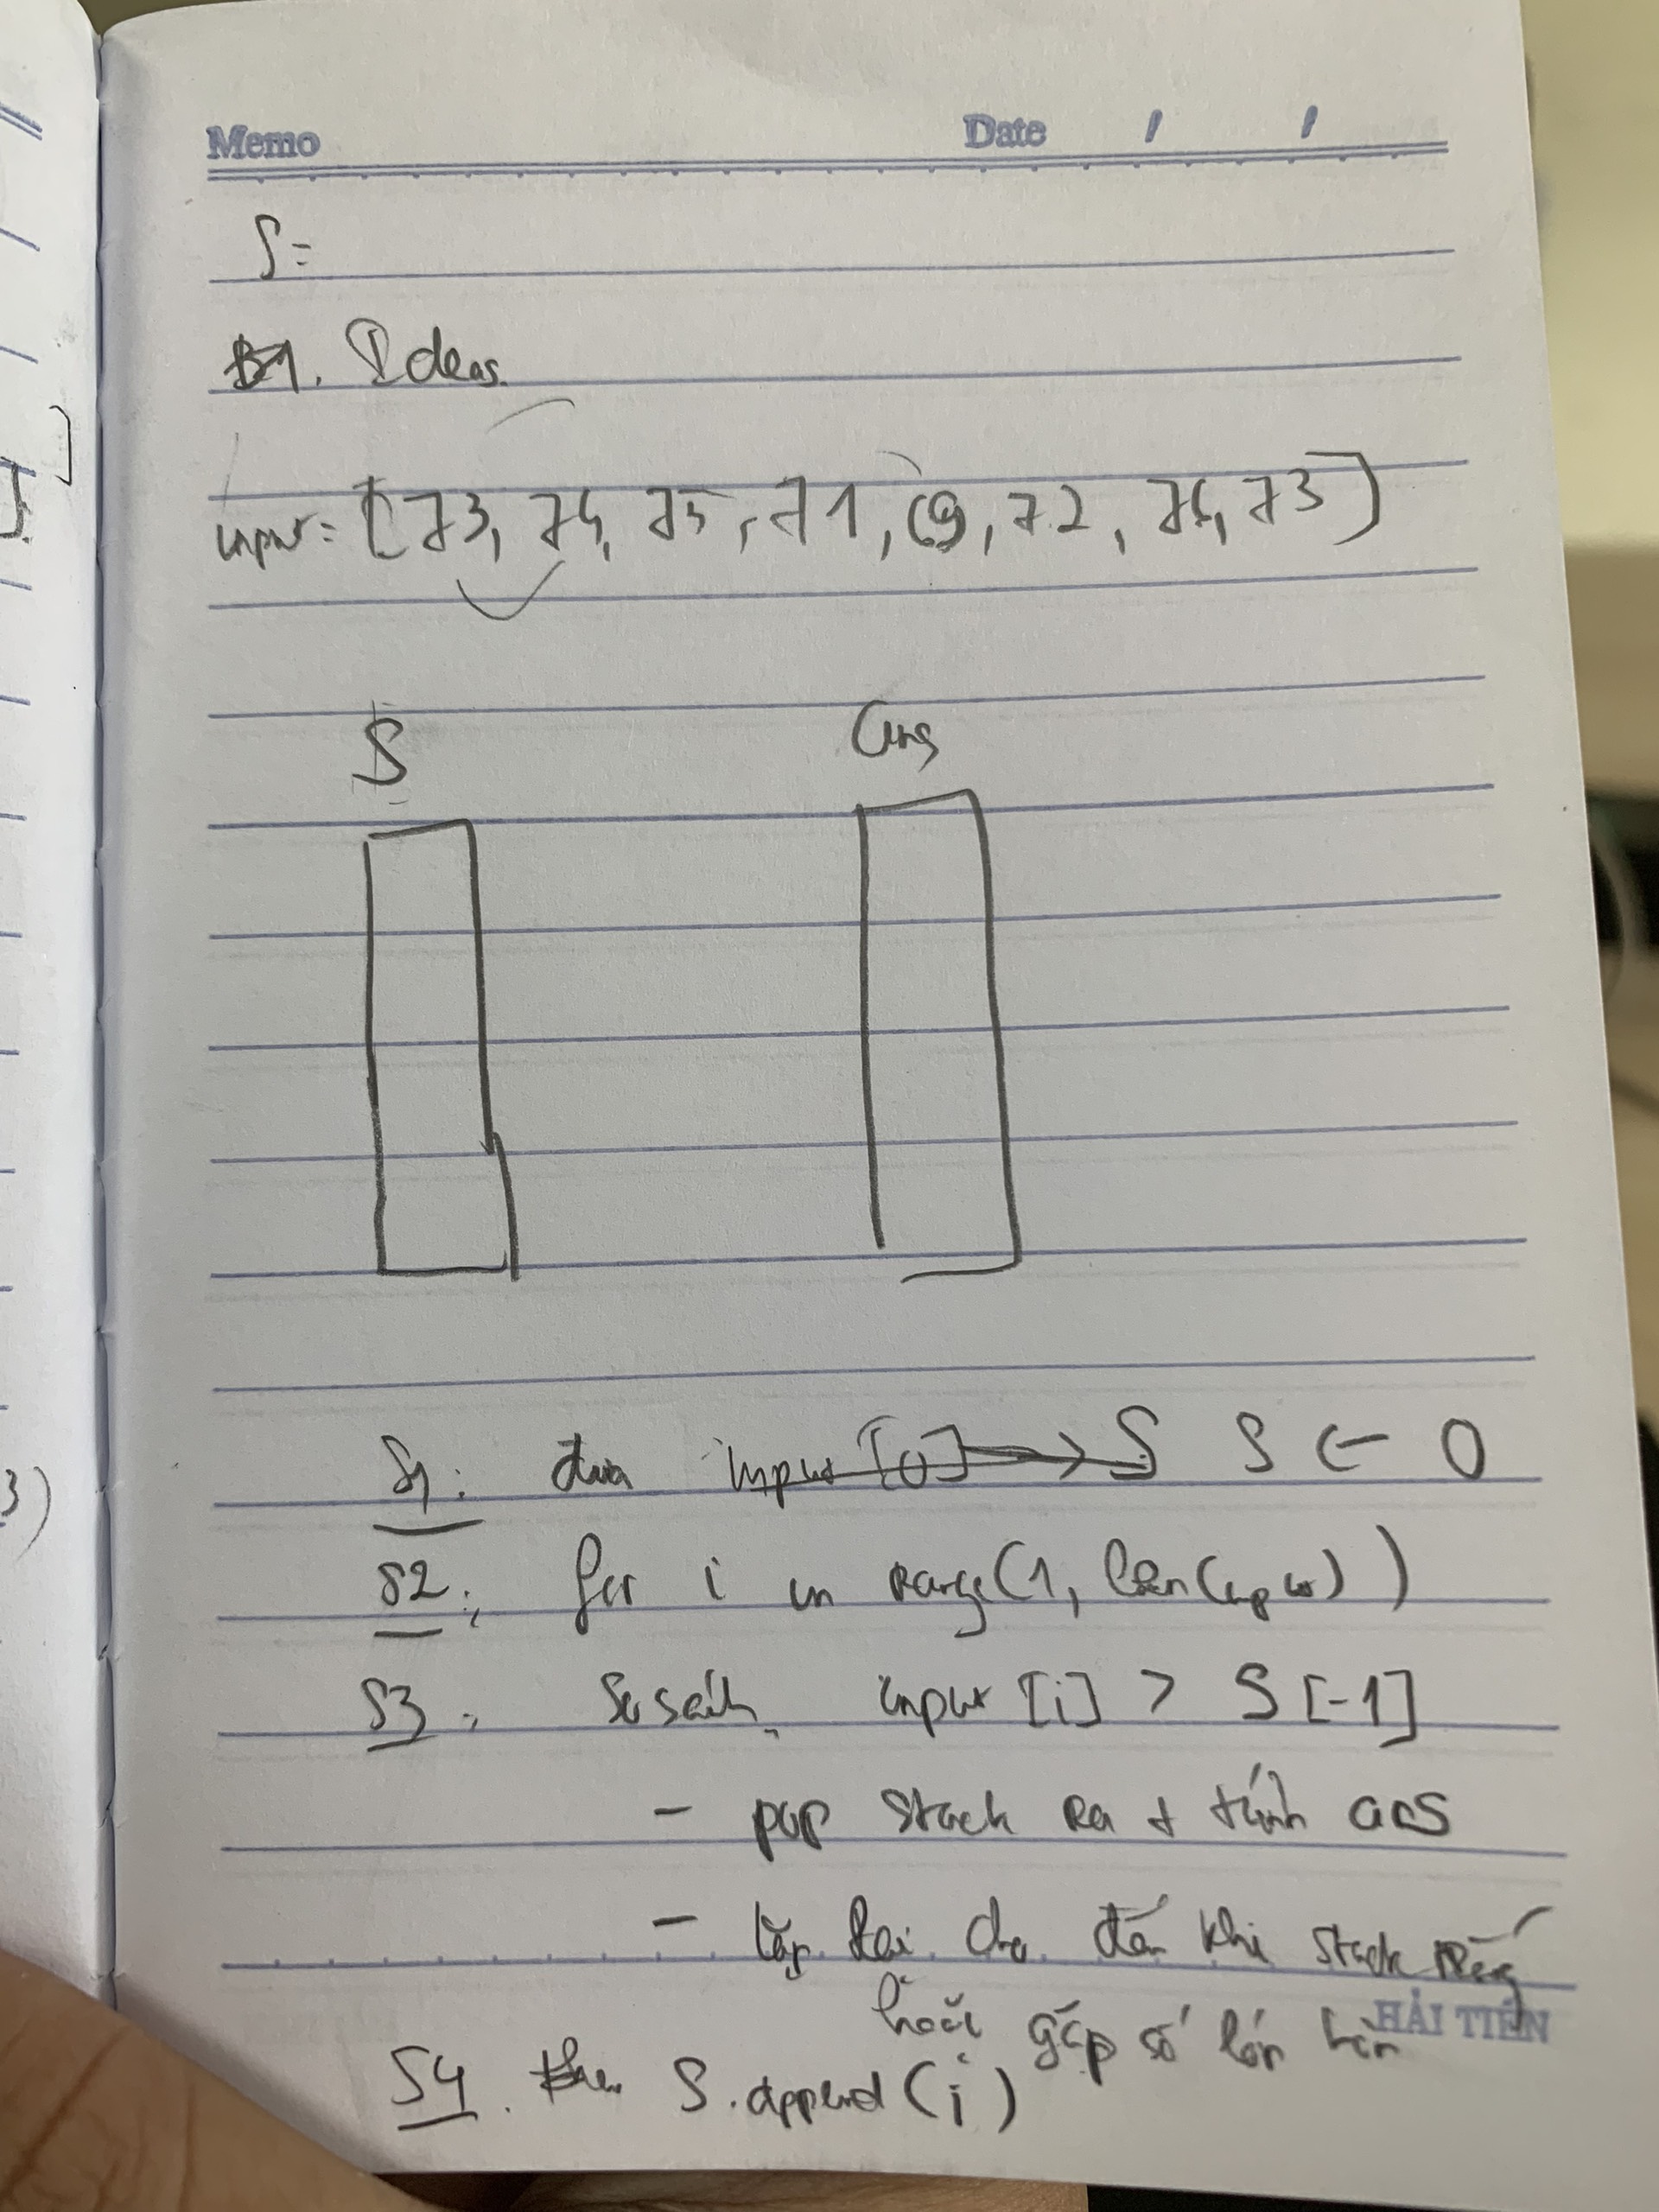 Memo Date / /
S=
B1. Ideas.
input = [73, 74, 75, 71, 69, 72, 76, 73]
S ans
S1: đưa input[0] → S S ← 0
S2: for i in range(1, len(input))
S3: So sánh input[i] > S[-1]
- pop stack ra + tính ans
- lặp lại cho đến khi stack rỗng
hoặc gặp số lớn hơn
HẢI TIẾN
S4. S.append(i)
]
3)